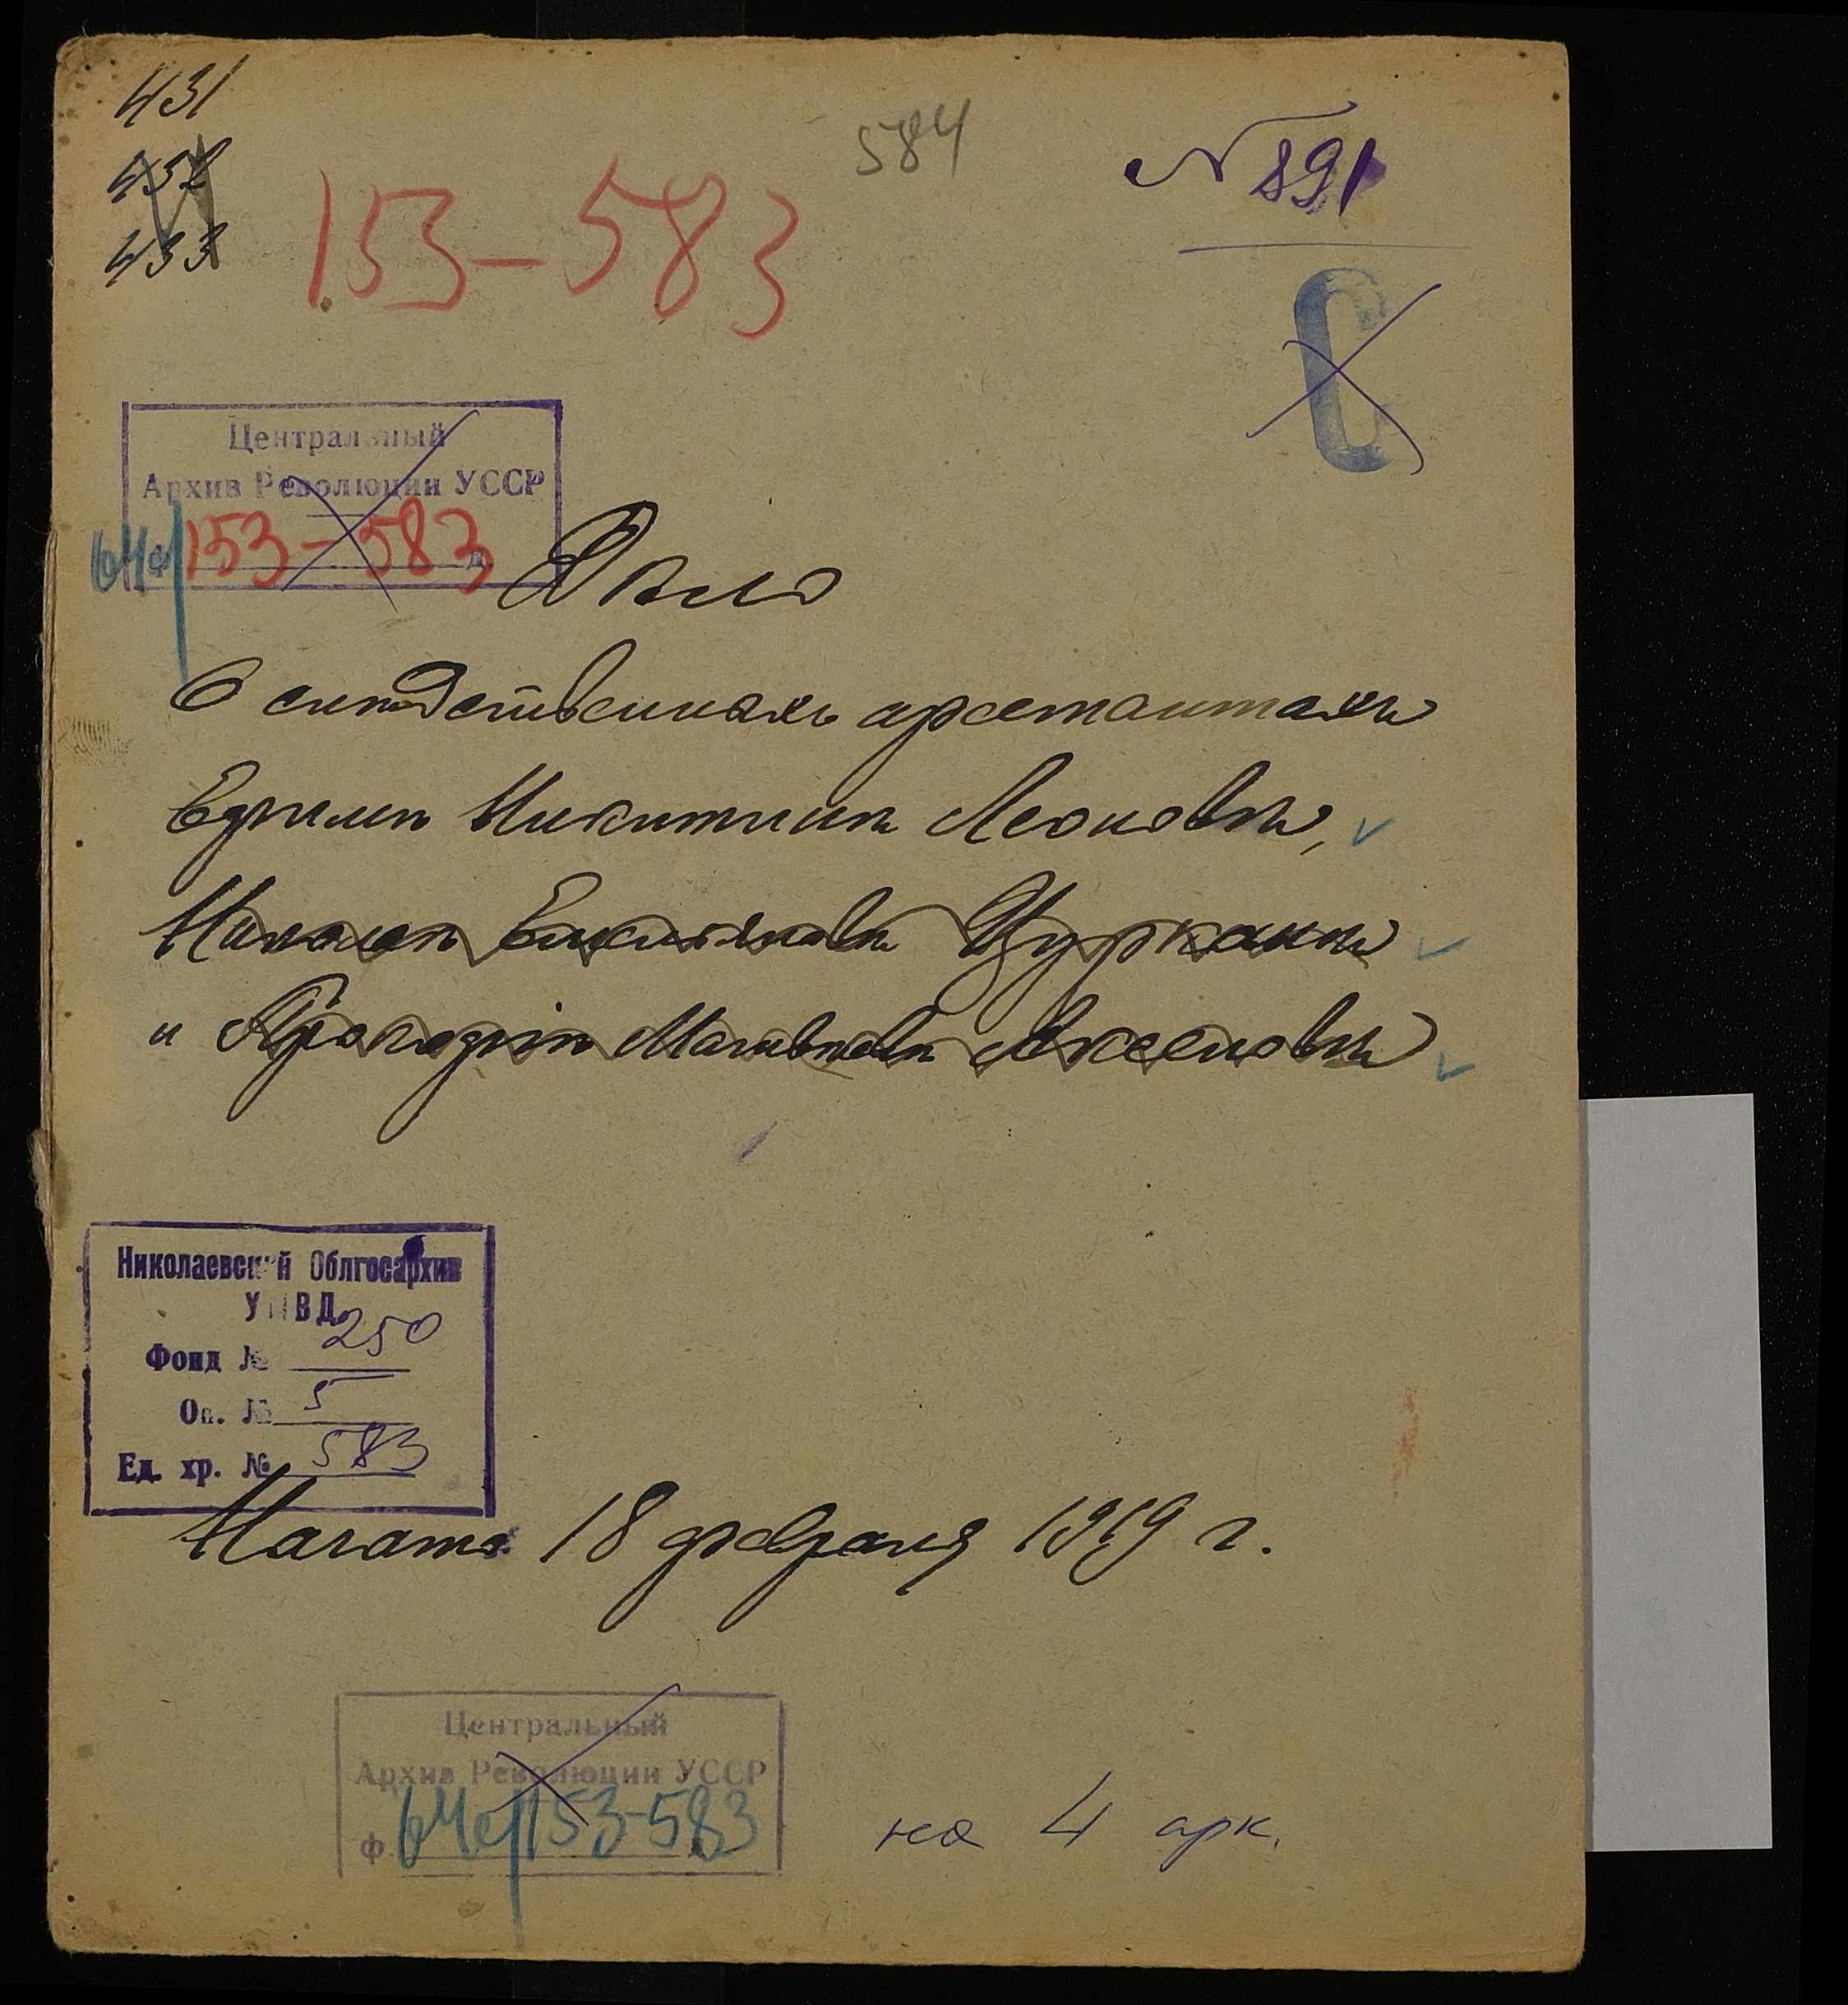 431
432
433
584
№ 891
153-583
С
Центральный
Архив Революции УССР
64ч ф 153-583 д
Дѣло
О слѣдственныхъ арестантахъ
Ефимѣ Никитинѣ Леоновѣ,
Николаѣ Цурканѣ
и Прокофіѣ Матвѣевѣ Аксеновѣ
Николаевский Облгосархив
УМВД
Фонд № 250
Оп. № 5
Ед. хр. № 583
Начато 18 февраля 1919 г.
Центральный
Архив Революции УССР
ф 64ч 153-583
на 4 арк.